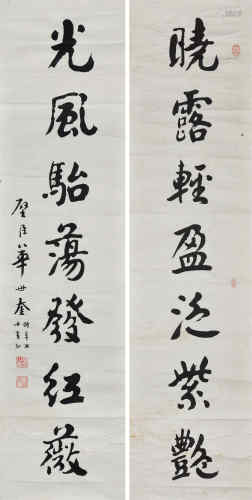 曉露輕盈泛紫艷
光風駘蕩發紅薇
璧臣華世奎